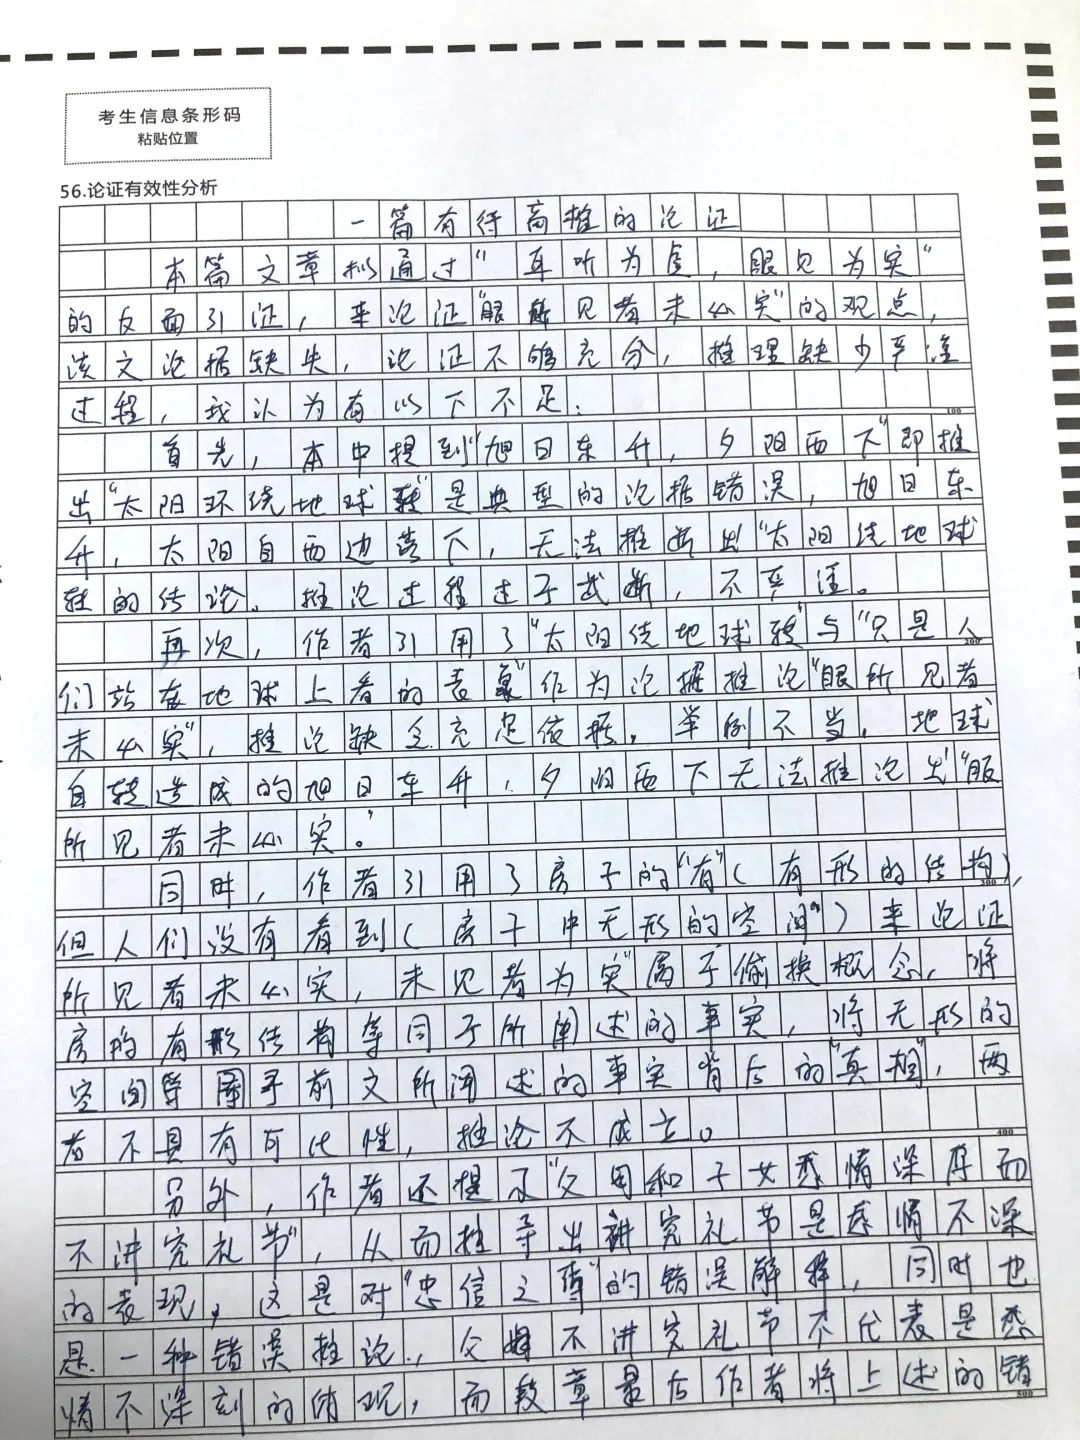 考生信息条形码
粘贴位置
56.论证有效性分析
一篇有待高推的论证
本篇文章拟通过"耳听为虚,眼见为实"
的反面引证,来论证"眼所见者未必实"的观点,
该文论据缺失,论证不够充分,推理缺少严谨
过程,我认为有以下不足:
100
首先,本中提到"旭日东升,夕阳西下"即推
出"太阳环绕地球转"是典型的论据错误,旭日东
升,太阳自西边落下,无法推断出"太阳绕地球
转的结论。推论过程过于武断,不严谨。
再次,作者引用了"太阳绕地球转"与"只是人
200
们站在地球上看的表象"作为论据推论"眼所见者
未必实",推论缺乏充足依据,举例不当,地球
自转造成的旭日东升,夕阳西下无法推论出"眼
所见者未必实。"
同时,作者引用了房子的"有"(有形的结构),
300
但人们没有看到(房子中无形的空间")来论证
所见者未必实,未见者为实"属于偷换概念,将
房的有形结构等同于所阐述的事实,将无形的
空间等同于前文所阐述的事实背后的"真相",两
者不具有可比性,推论不成立。
400
另外,作者还提了"父母和子女感情深厚而
不讲究礼节",从而推导出讲究礼节是感情不深
的表现,这是对"忠信之薄"的错误解释,同时也
是一种错误推论,父母不讲究礼节不代表是感
情不深刻的体现,而段章最后作者将上述的错
500